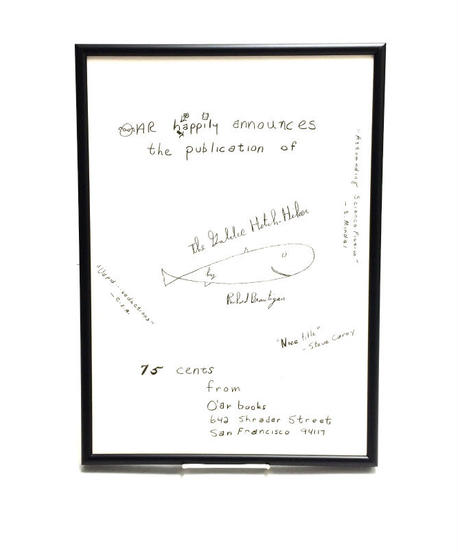 OAR happily announces
the publication of
"Astounding Science Fiction"
The Galilee Hitch-Hiker
by
Richard Brautigan
"Nice title"
- Steve Carey
75 cents
from
O'ar books
642 Shrader Street
San Francisco 94117